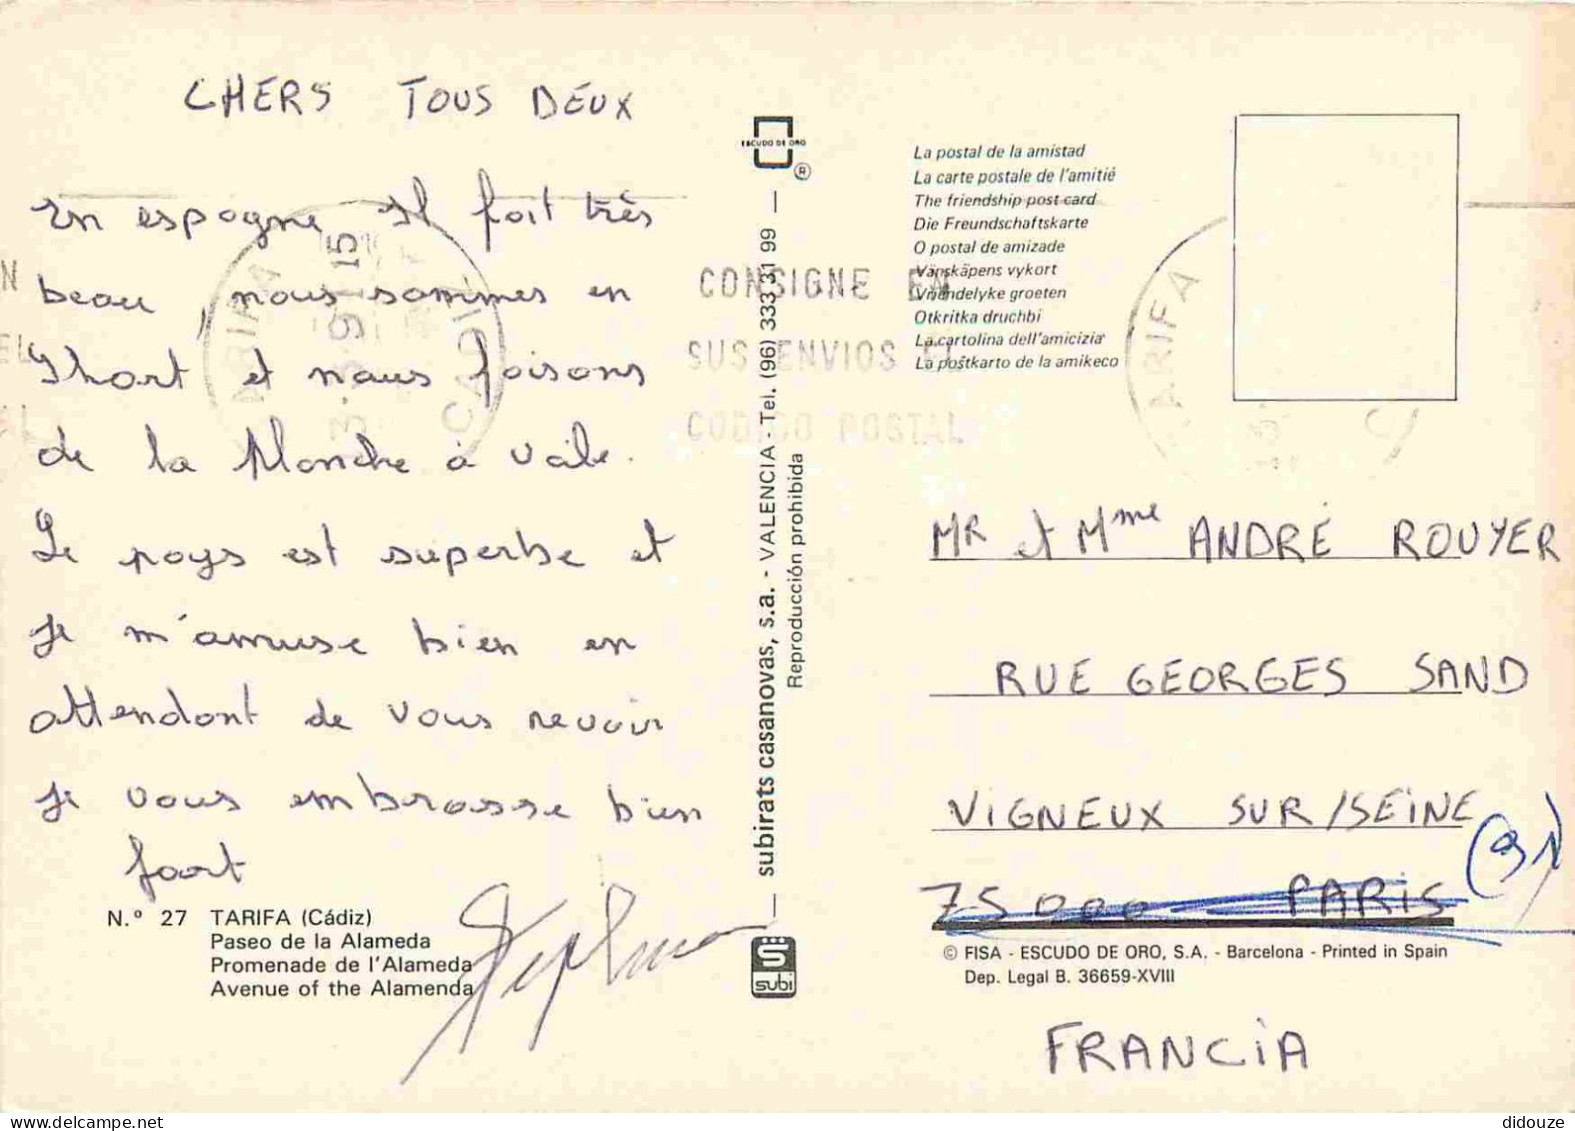 CHERS TOUS DEUX
En espagne il fait très
beau, nous sommes en
short et nous faisons
de la planche à voile.
Le pays est superbe et
je m'amuse bien en
attendant de vous revoir
je vous embrasse bien
fort
N.º 27 TARIFA (Cádiz)
Paseo de la Alameda
Promenade de l'Alameda
Avenue of the Alamenda
TARIFA
CADIZ
CONSIGNE EN
SUS ENVIOS EL
CODIGO POSTAL
ESCUDO DE ORO
®
subirats casanovas, s.a. - VALENCIA - Tel. (96) 333 31 99
Reproducción prohibida
subi
La postal de la amistad
La carte postale de l'amitié
The friendship post card
Die Freundschaftskarte
O postal de amizade
Vänskäpens vykort
Vriendelyke groeten
Otkritka druchbi
La cartolina dell'amicizia
La poŝtkarto de la amikeco
TARIFA
MR et Mme ANDRÉ ROUYER
RUE GEORGES SAND
VIGNEUX SUR/SEINE
(91)
75000 PARIS
© FISA - ESCUDO DE ORO, S.A. - Barcelona - Printed in Spain
Dep. Legal B. 36659-XVIII
FRANCIA
didouze